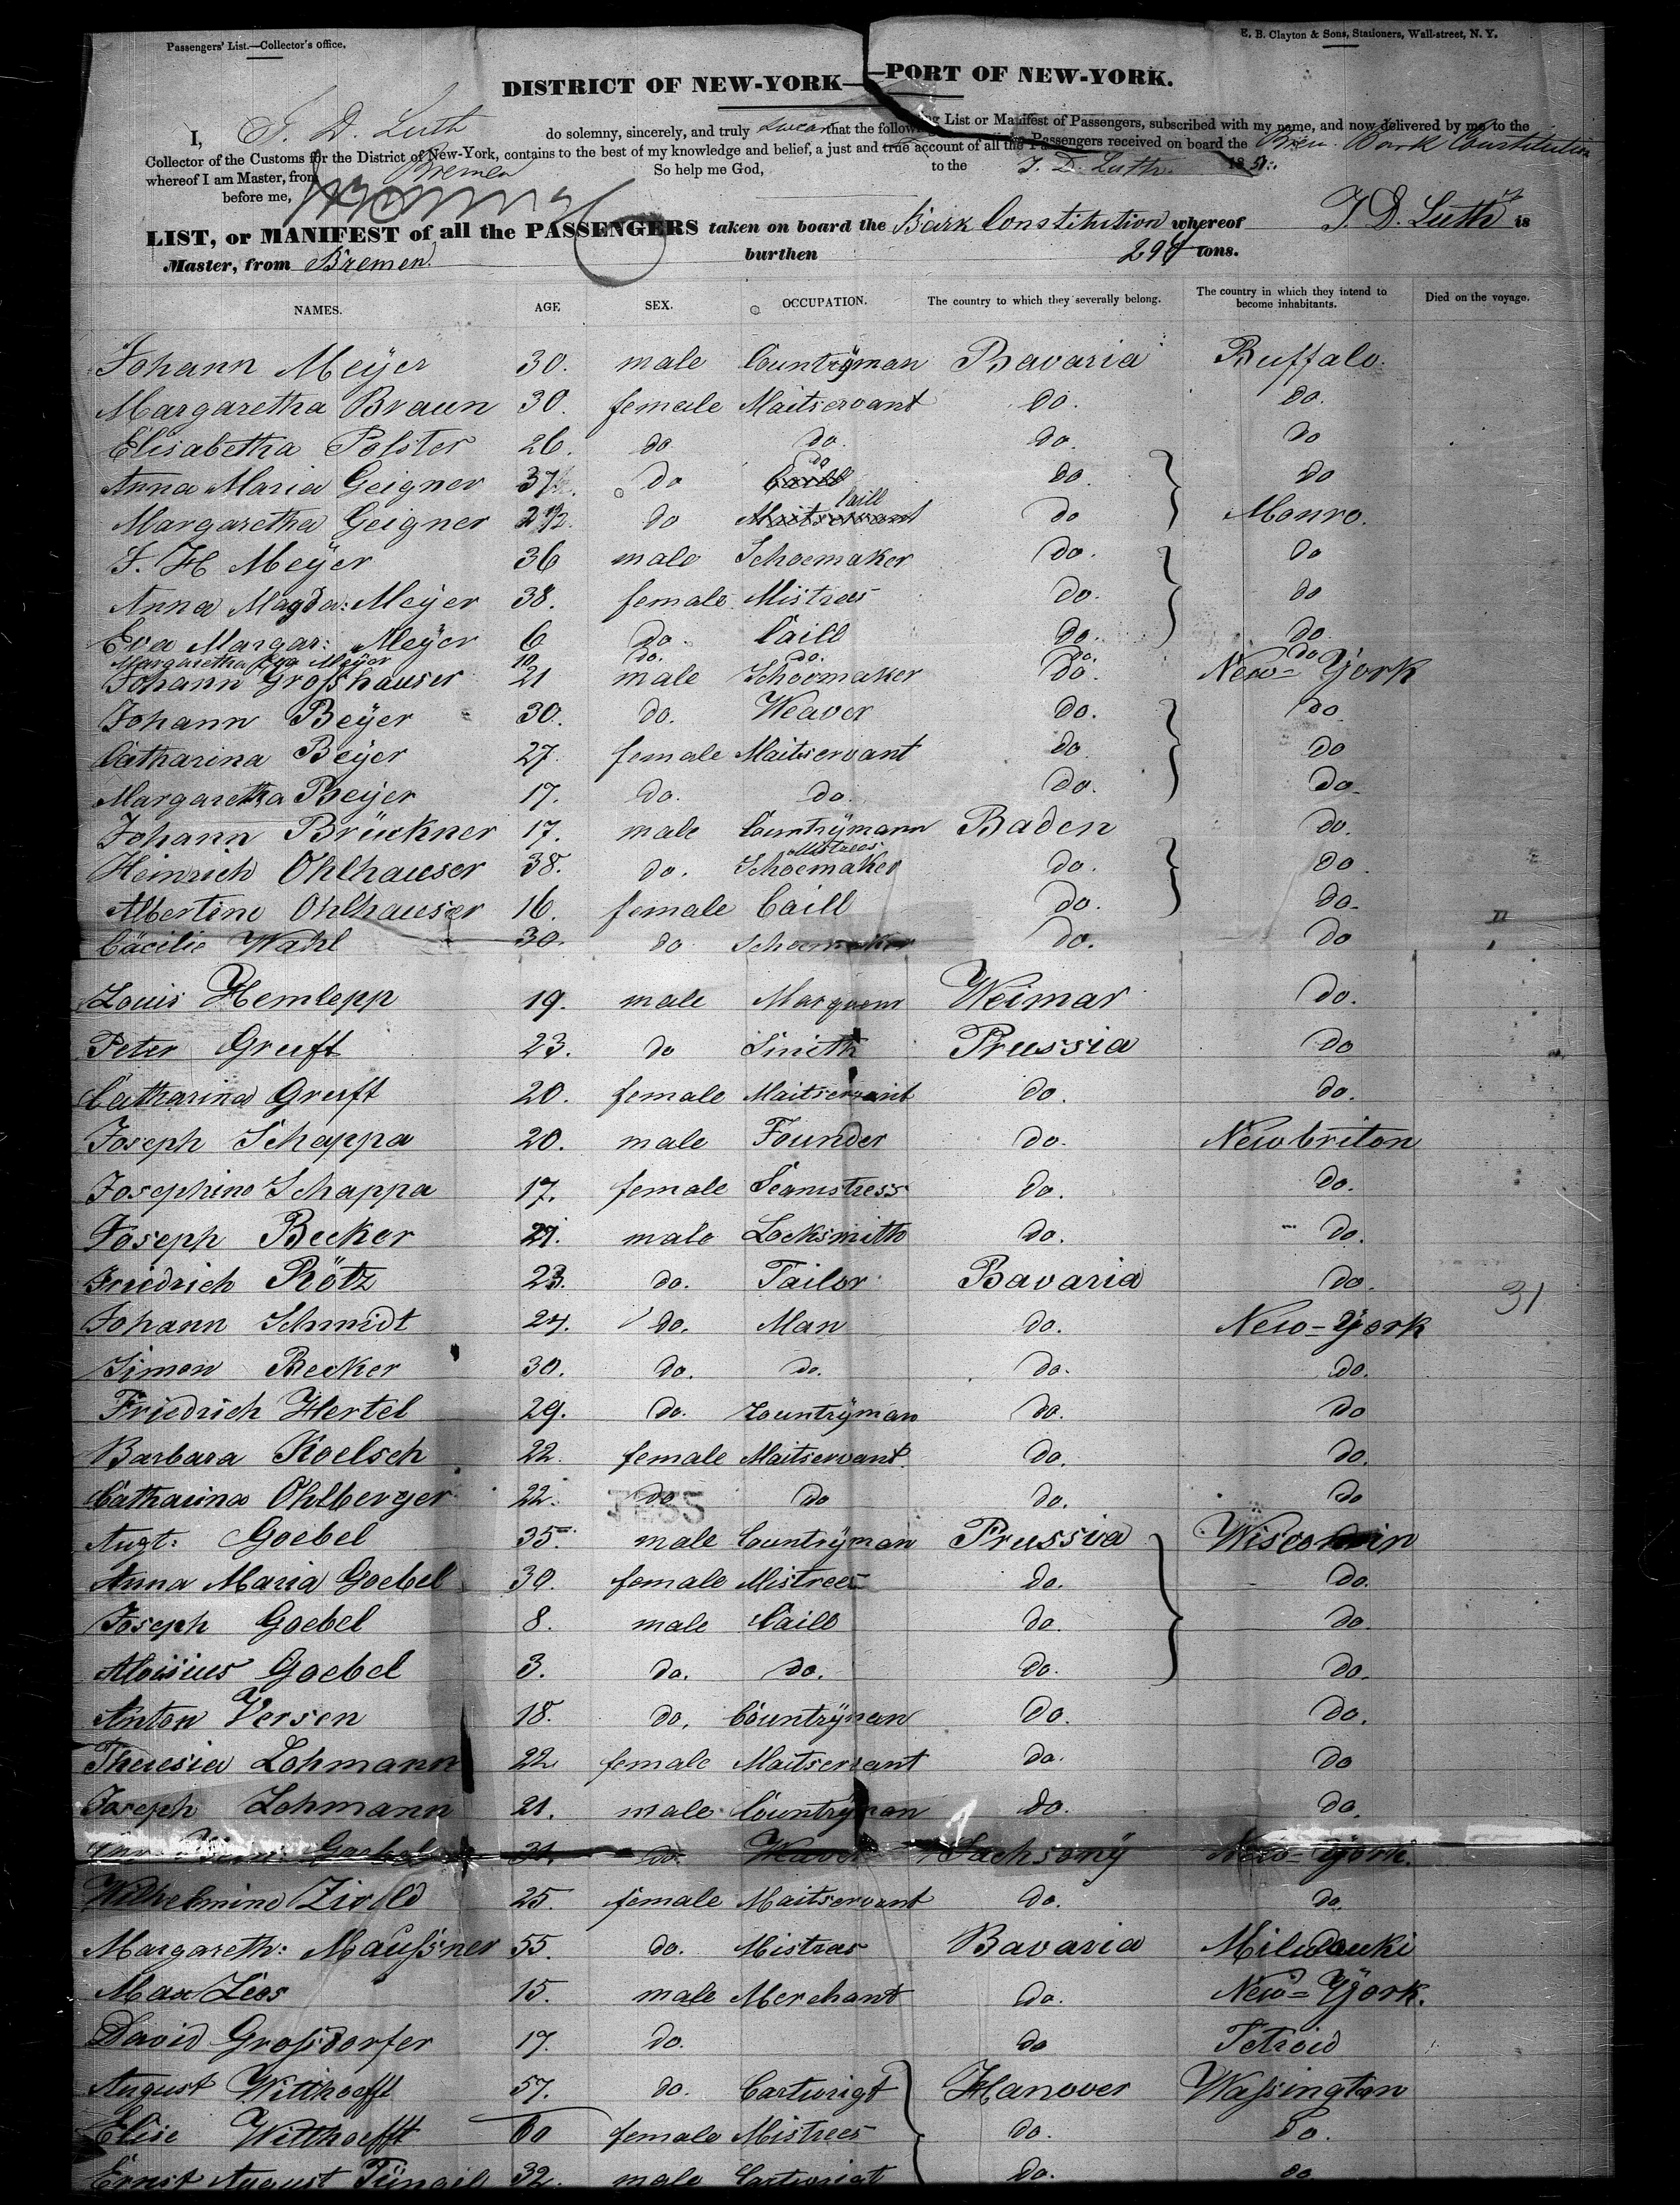 Passengers' List.—Collector's office.
E. B. Clayton & Sons, Stationers, Wall-street, N. Y.
DISTRICT OF NEW-YORK—PORT OF NEW-YORK.
I, J. D. Luth do solemny, sincerely, and truly swear that the following List or Manifest of Passengers, subscribed with my name, and now delivered by me to the
Collector of the Customs for the District of New-York, contains to the best of my knowledge and belief, a just and true account of all the Passengers received on board the Brem. Bark Constitution
whereof I am Master, from Bremen So help me God, to the J. D. Luth. 185
before me,
LIST, or MANIFEST of all the PASSENGERS taken on board the Bark Constitution whereof J. D. Luth is
Master, from Bremen. burthen 29 tons.
NAMES. AGE SEX. OCCUPATION. The country to which they severally belong. The country in which they intend to become inhabitants. Died on the voyage.
Johann Meÿer 30. male Countrÿman Bavaria Buffalo.
Margaretha Braun 30. female Maitservant do. do.
Elisabetha Polster 26. do do. do. do
Anna Maria Geigner 37. do do do. do
Margaretha Geigner do Caill do Monro.
J. H Meÿer 36 male Schoemaker do. do
Anna Magda: Meÿer 38. female Mistrees do. do
Eva Margar: Meÿer 6 do. Caill do. do.
Margaretha Eva Meÿer 10 do. do. do. do
Johann Großhauser 21 male Schoemaker do. New=Ÿork
Johann Beÿer 30. do. Weaver do. do.
Catharina Beÿer 27. female Maitservant do do
Margaretha Beÿer 17. do. do. do. do.
Johann Brückner 17. male Countrÿmann Baden do.
Heinrich Ohlhauser 38. do. Schoemaker do. do.
Albertine Ohlhauser 16. female Mistrees Caill do. do.
Cäcilie Wahl 30. do Schoemaker do. do
Louis Hemlepp 19. male Marqueur Weimar do.
Peter Gruft 23. do Smith Prussia do
Catharina Gruft 20. female Maitservant do. do.
Joseph Schappa 20. male Founder do. Newbriton
Josephine Schappa 17. female Seamstress do. do.
Joseph Becker 27. male Locksmith do. do.
Friedrich Rötz 23. do. Tailor Bavaria do.
31
Johann Schmidt 24. do. Man do. New=Ÿork
Simon Becker 30. do. do. do. do.
Friedrich Hertel 29. do. Countrÿman do. do
Barbara Koelsch 22. female Maitservant. do. do.
Catharina Ohlberger 22. do do do. do
Augt: Goebel 35. male Countrÿman Prussia Wisconsin
Anna Maria Goebel 30. female Mistrees do. do.
Joseph Goebel 8. male Caill do. do.
Aloisius Goebel 3. do. do. do. do.
Anton Versen 18. do. Countrÿman do. do.
Theresia Lohmann 22 female Maitservant do. do
Joseph Lohmann 21. male Countrÿman do. do.
Goebel do. Weaver Sachsonÿ New=Ÿork.
Wilhelmine Zivold 25. female Maitservant do. do.
Margareth: Maußner 55. do. Mistrees Bavaria Milwauki
Max Lees 15. male Merchant do. New=Ÿork.
David Großdorfer 17. do. do Tetroid
August Witthoefft 57. do. Cartwrigt Hanover Waßington
Elise Witthoefft 60 female Mistrees do. do.
Ernst August Tüngel 32. male Cartwrigt do. do